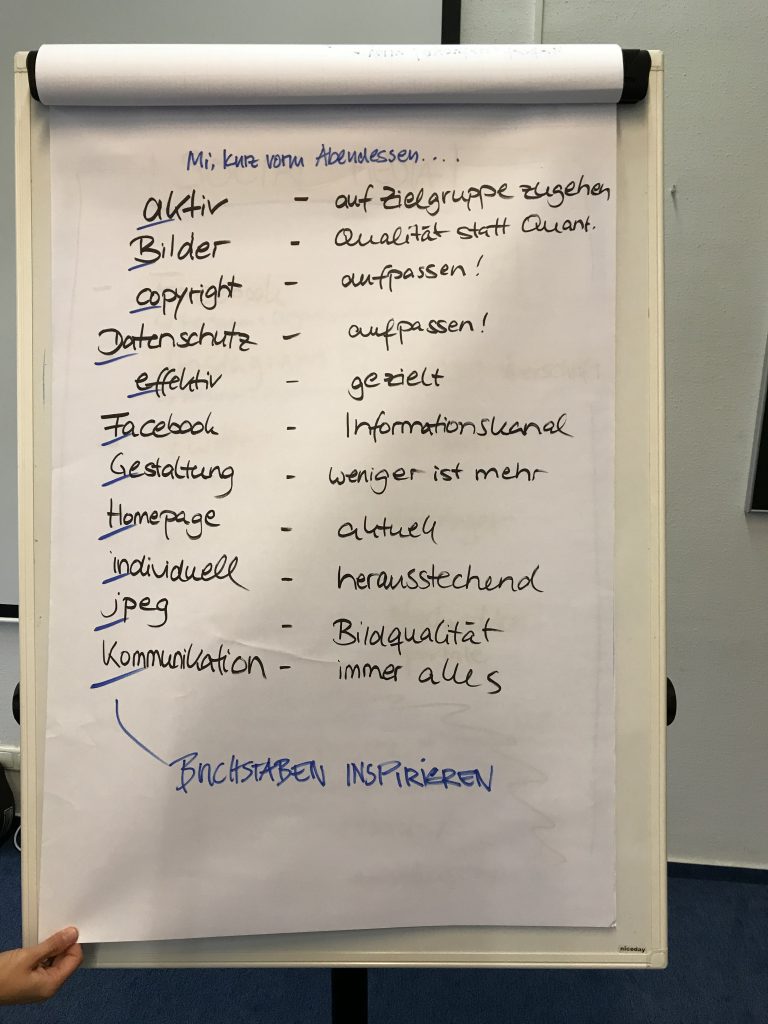 Mi, kurz vorm Abendessen....
aktiv - auf Zielgruppe zugehen
Bilder - Qualität statt Quant.
copyright - aufpassen!
Datenschutz - aufpassen!
effektiv - gezielt
Facebook - Informationskanal
Gestaltung - weniger ist mehr
Homepage - aktuell
individuell - herausstechend
jpeg - Bildqualität
Kommunikation - immer alles
BUCHSTABEN INSPIRIEREN
niceday